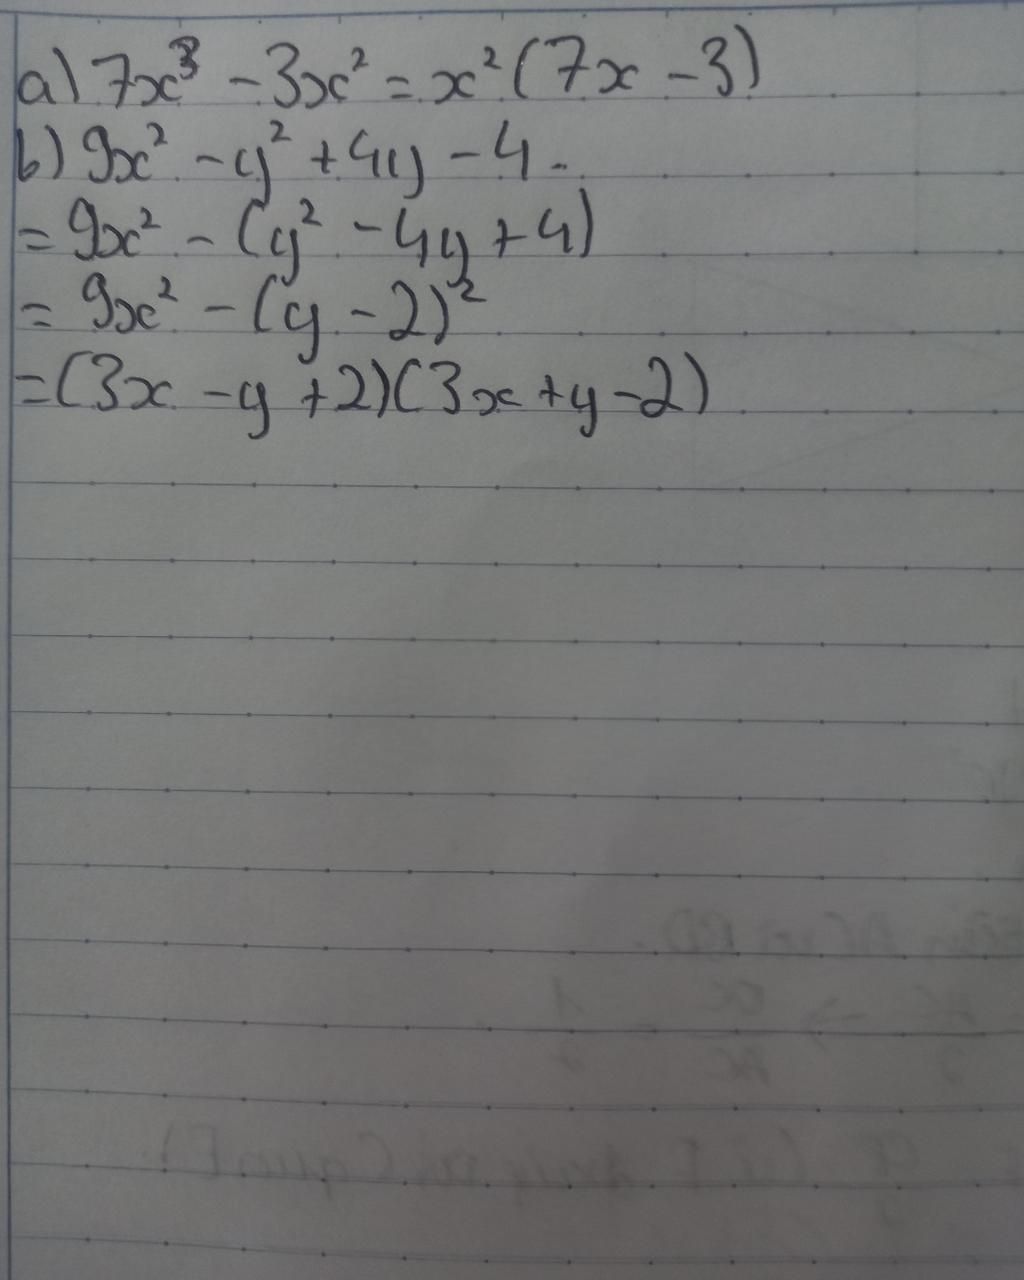 a) 7x³ - 3x² = x² (7x - 3)
b) 9x² - y² + 4y - 4.
= 9x² - (y² - 4y + 4)
= 9x² - (y - 2)²
= (3x - y + 2)(3x + y - 2)